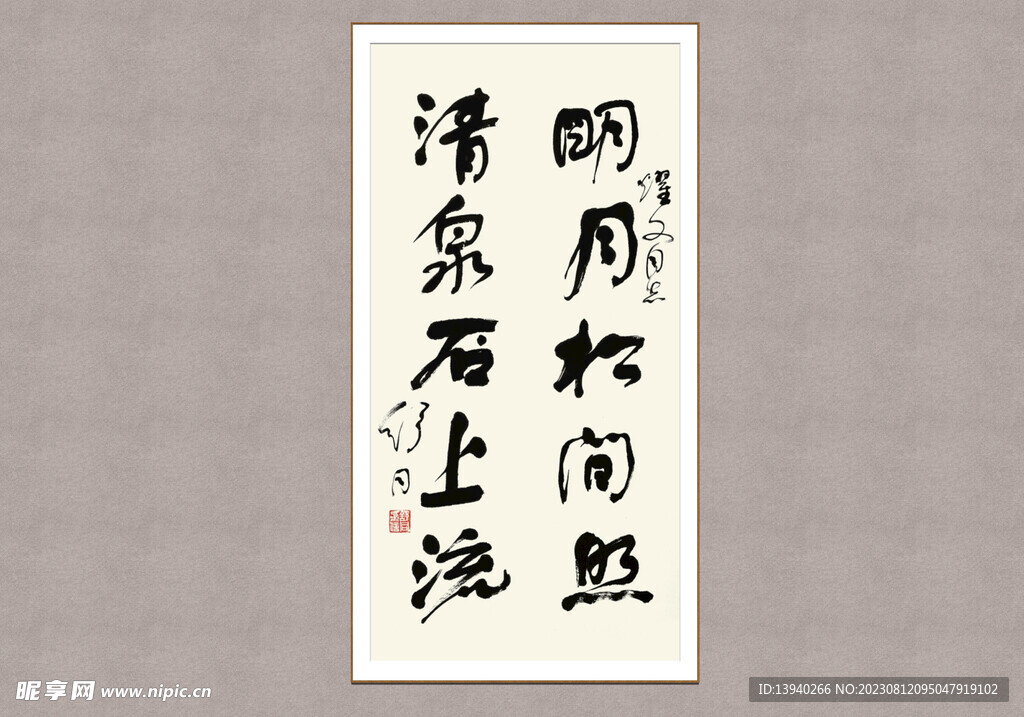 明月松间照
耀文同志
清泉石上流
舒同
昵享网 www.nipic.cn
ID:13940266 NO:20230812095047919102